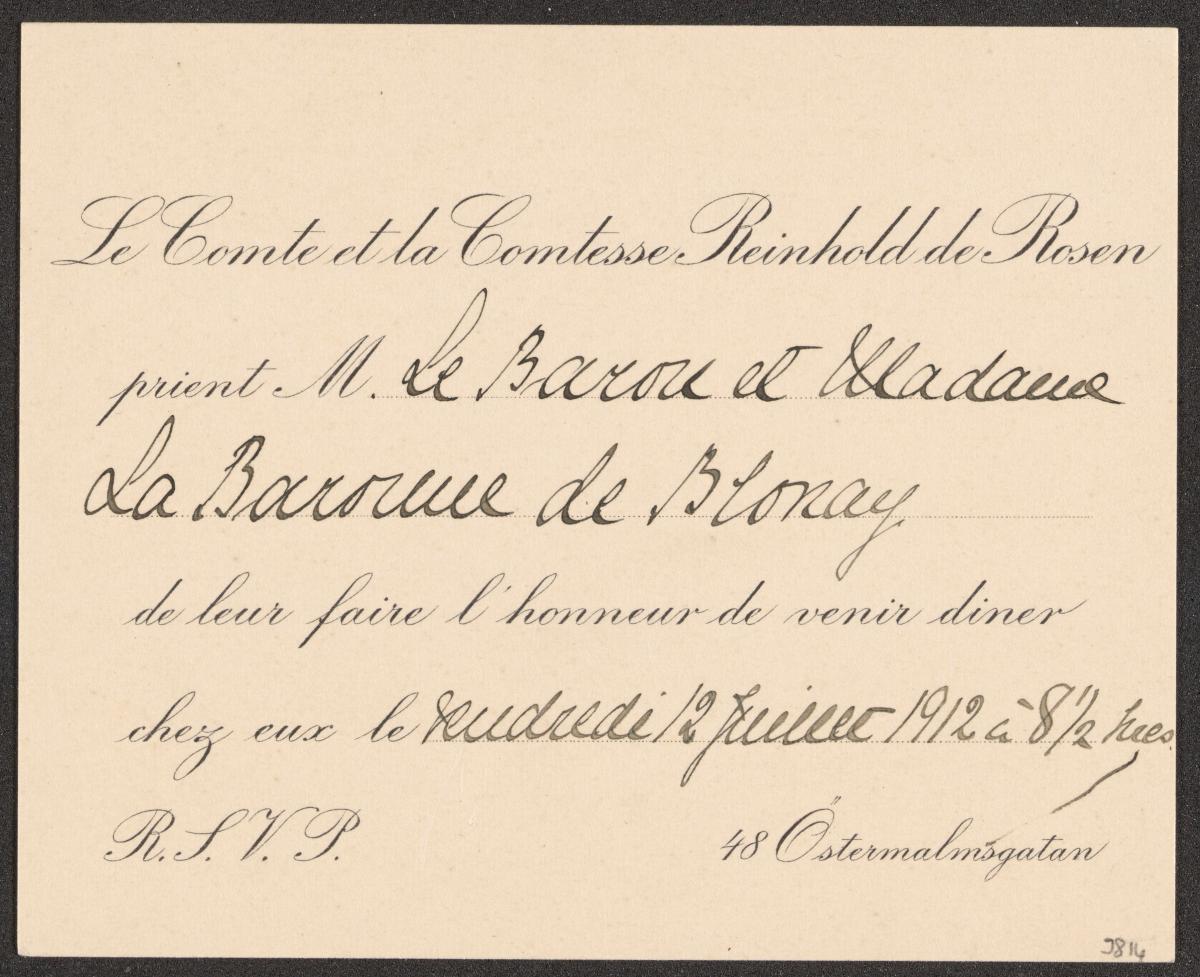 Le Comte et la Comtesse Reinhold de Rosen
prient M. Le Baron et Madame
La Baronne de Blonay
de leur faire l'honneur de venir diner
chez eux le Vendredi 12 Juillet 1912 à 8 1/2 hres
R. S. V. P.
48 Östermalmsgatan
J814